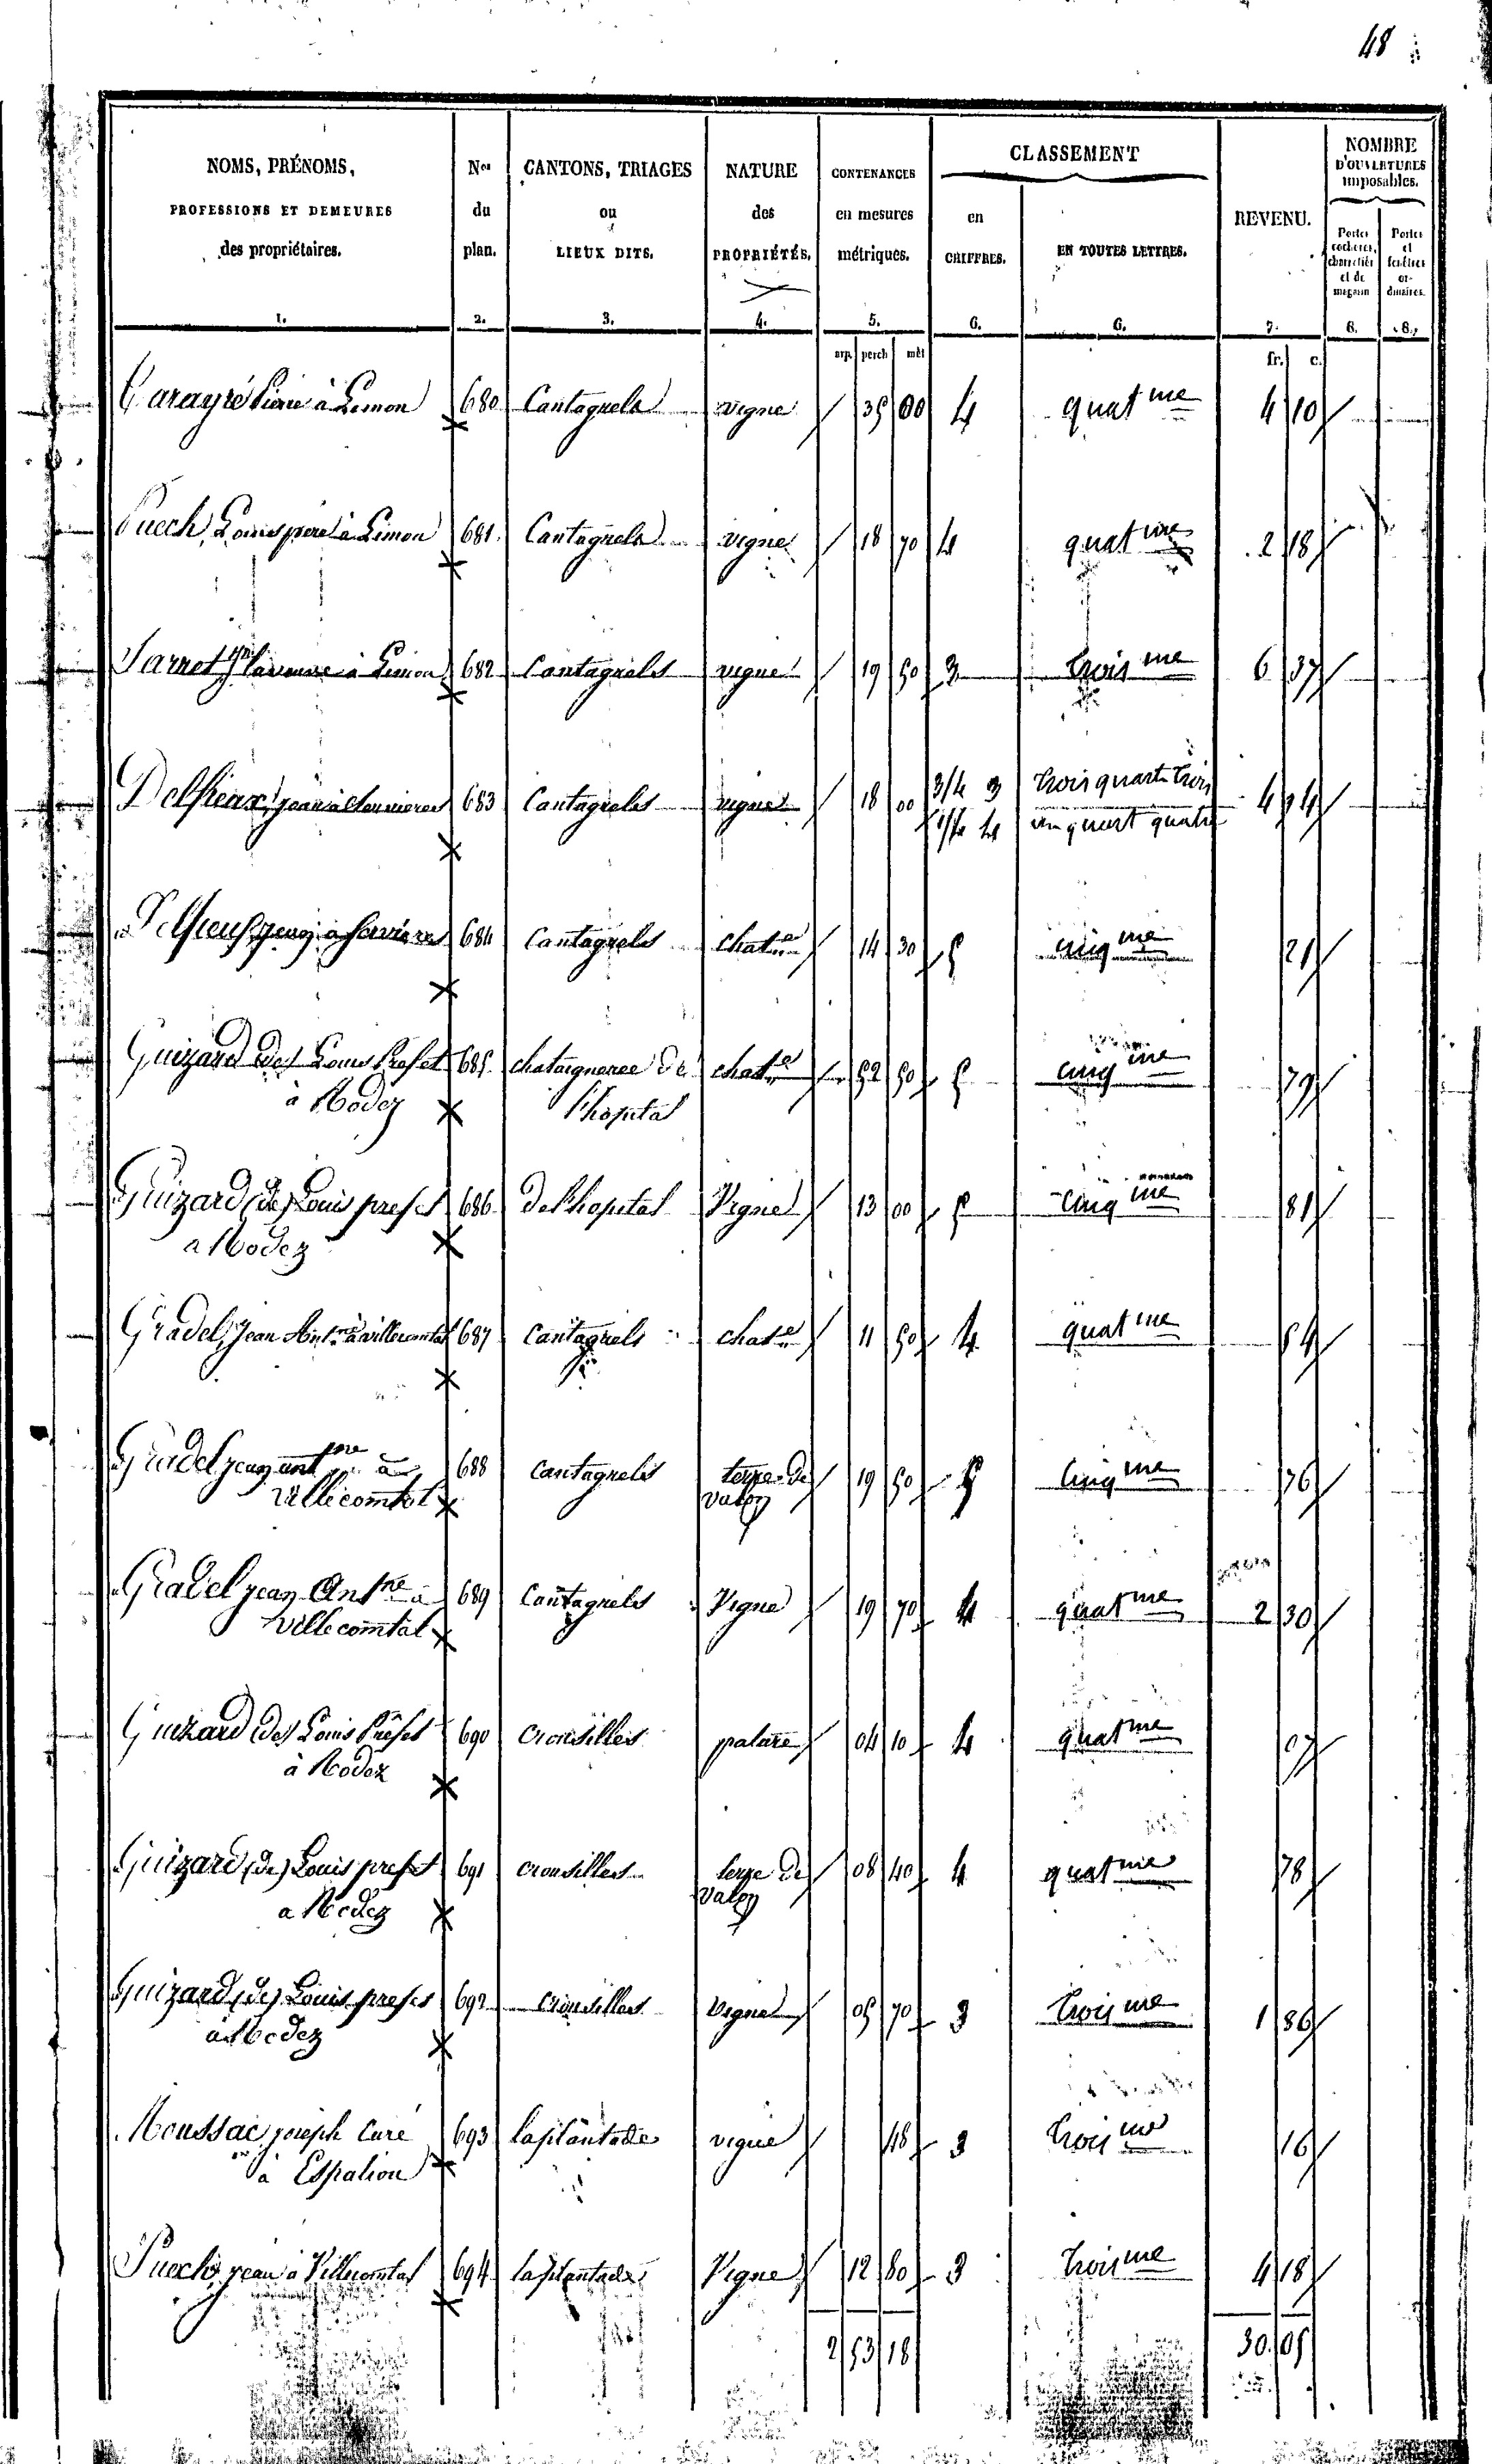 48
NOMS, PRÉNOMS, PROFESSIONS ET DEMEURES des propriétaires. 1.
Nos du plan. 2.
CANTONS, TRIAGES ou LIEUX DITS. 3.
NATURE des PROPRIÉTÉS. 4.
CONTENANCES en mesures métriques. 5.
CLASSEMENT
en CHIFFRES. 6.
EN TOUTES LETTRES. 6.
REVENU. 7.
NOMBRE D'OUVERTURES imposables.
Portes cochères, charretières et de magasin 8.
Portes et fenêtres ordinaires. 8.
arp. perch. mèt. fr. c.
Carayré Pierre à Limon 680 Cantagrels vigne 35 00 4 quatme 4 10
Puech Louis père à Limon 681 Cantagrels vigne 18 70 4 quatme 2 18
à Limon 682 Cantagrels vigne 19 50 3 troisme 6 37
683 Cantagrels vigne 18 00 3/4 3 trois quarts trois 4
1/4 4 un quart quatre
684 Cantagrels chate 14 30 5 cinqme 21
Guizard (de) Louis Préfet 685 chataigneree de chate 52 50 5 cinqme 79
à Rodez l'hopital
Guizard (de) Louis prefet 686 de l'hopital Vigne 13 00 5 cinqme 81
a Rodez
Gradel, Jean Antne à villecomtal 687 Cantagrels chate 11 50 4 quatme 54
Gradel jean antne à 688 Cantagrels terre de 19 50 5 cinqme 76
villecomtal
Gradel jean Antne à 689 Cantagrels Vigne 19 70 4 quatme 2 30
villecomtal
Guizard (de) Louis Préfet 690 Crousilles pature 04 10 4 quatme 07
à Rodez
Guizard (de) Louis prefet 691 crousilles terre de 08 40 4 quatme 78
a Rodez
Guizard (de) Louis prefet 692 crousilles Vigne 05 70 3 troisme 1 86
à Rodez
Moussac joseph Curé 693 laplantade vigne 48 3 troisme 16
à Espalion
Puech jean à Villecomtal 694 laplantade Vigne 12 80 3 troisme 4 18
2 53 18 30 05